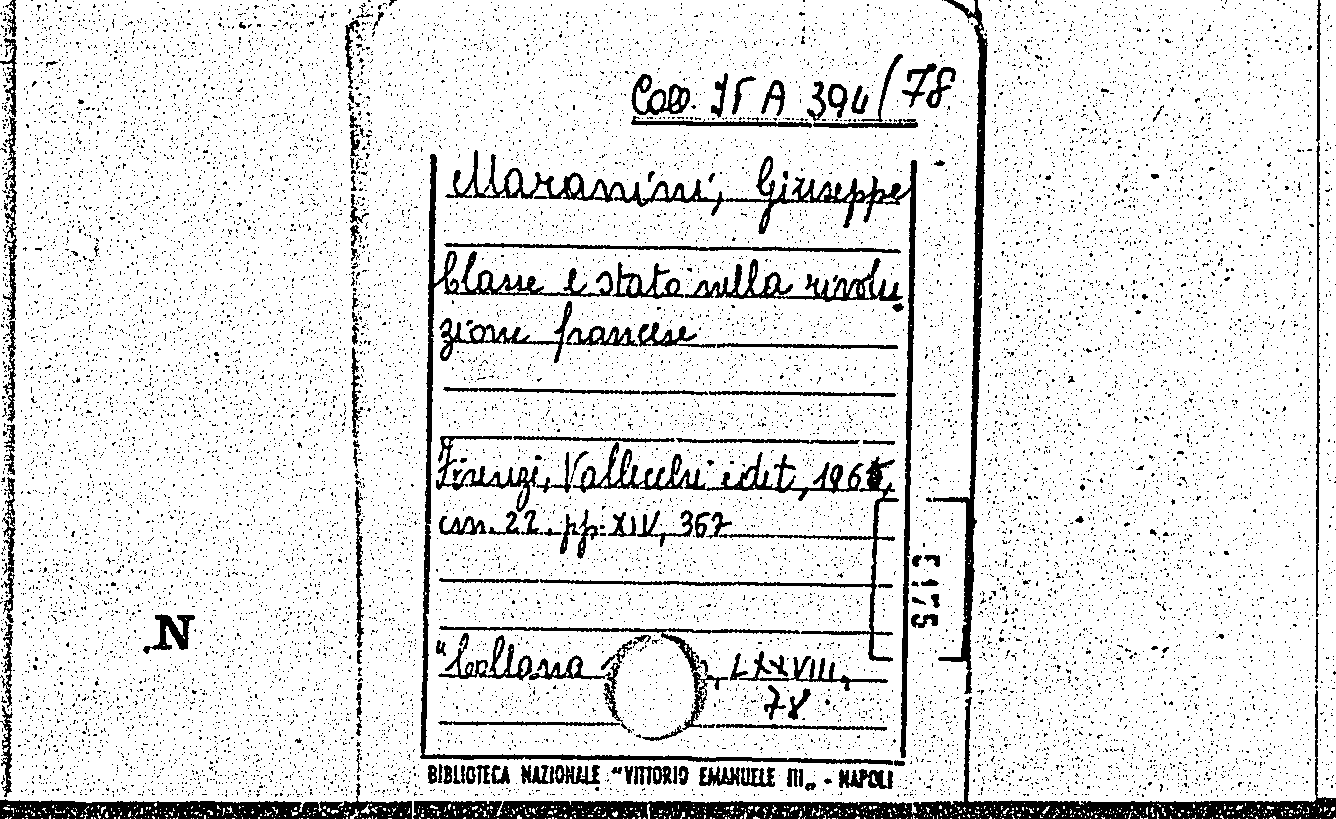 Coll. IT A 394/78
Maranini, Giuseppe
Classe e stato nella rivolu
zione francese
Firenze, Vallecchi edit, 1965,
cm. 22. pp. XIV, 367
"Collana , LXXVIII,
78
N
BIBLIOTECA NAZIONALE "VITTORIO EMANUELE III" - NAPOLI